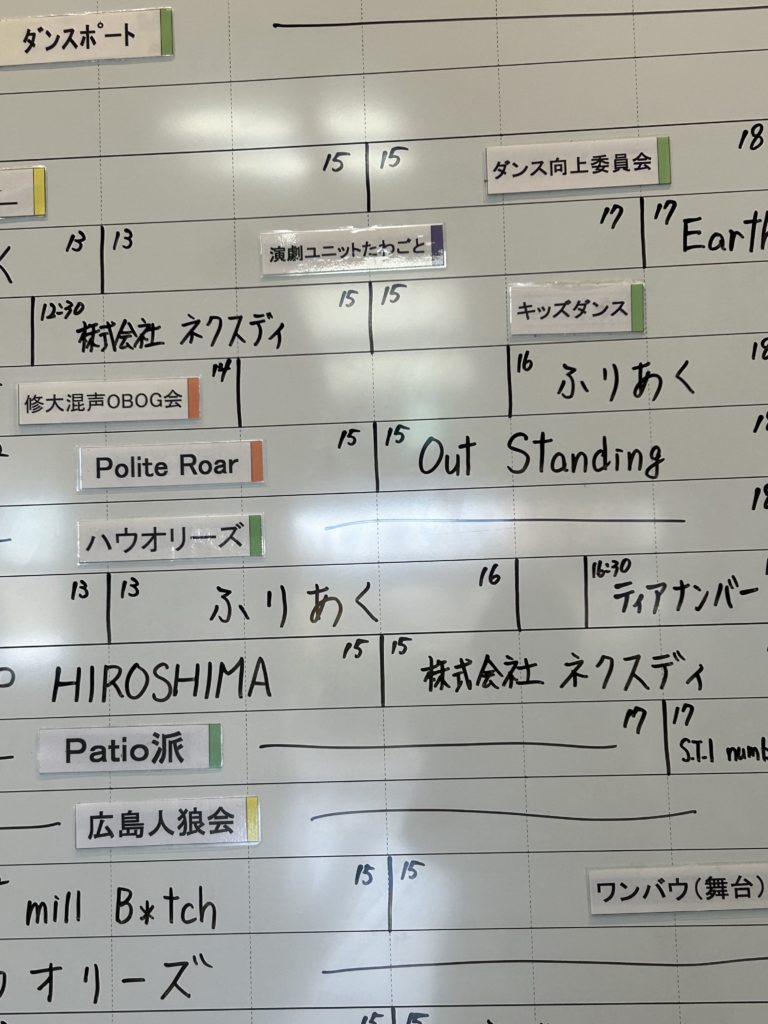 ダンスポート
15 15 ダンス向上委員会 18
く 13 13 演劇ユニットたわごと 17 17 Earth
12:30 株式会社 ネクスディ 15 15 キッズダンス
修大混声OBOG会 14 16 ふりあく 18
Polite Roar 15 15 Out Standing 18
ハウオリーズ 18
13 13 ふりあく 16 16:30 ティアナンバー
HIROSHIMA 15 15 株式会社 ネクスディ
Patio派 17 17 S.T.1 numb
広島人狼会
mill B*tch 15 15 ワンバウ(舞台)
ウオリーズ
15 15